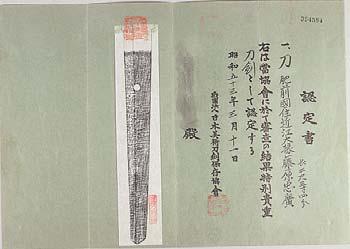 認定書
一、刀 肥前國住近江大掾藤原忠廣
右は當協會に於て審査の結果特別貴重
刀劍として認定する
昭和五十三年三月十一日
財團法人日本美術刀劍保存協會
殿